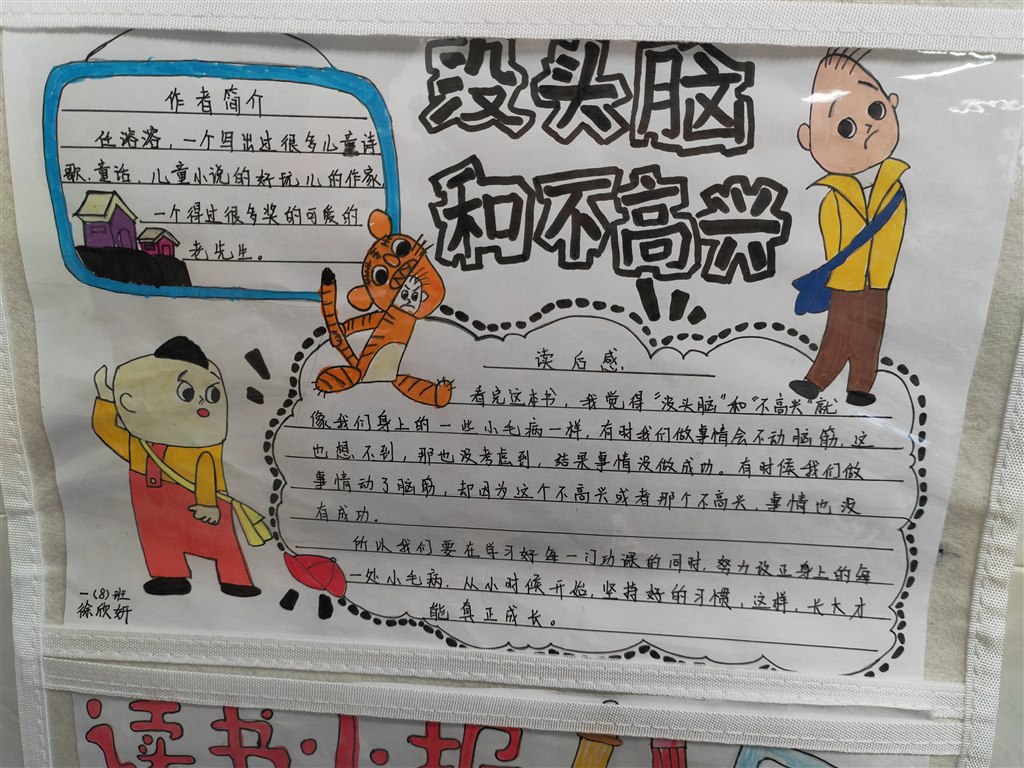 没头脑
和不高兴
作者简介
任溶溶，一个写出过很多儿童诗
歌、童话、儿童小说的好玩儿的作家，
一个得过很多奖的可爱的
老先生。
读后感
看完这本书，我觉得“没头脑”和“不高兴”就
像我们身上的一些小毛病一样，有时我们做事情会不动脑筋，这
也想不到，那也没考虑到，结果事情没做成功。有时候我们做
事情动了脑筋，却因为这个不高兴或者那个不高兴，事情也没
有成功。
所以我们要在学习好每一门功课的同时，努力改正身上的每
一处小毛病，从小时候开始，坚持好的习惯，这样，长大才
能真正成长。
一（8）班
徐欣妍
读书小报